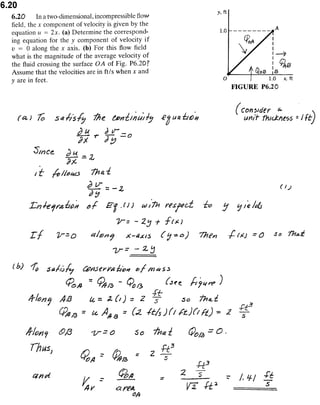 6.20
6.20 In a two-dimensional, incompressible flow
field, the x component of velocity is given by the
equation u = 2x. (a) Determine the correspond-
ing equation for the y component of velocity if
v = 0 along the x axis. (b) For this flow field
what is the magnitude of the average velocity of
the fluid crossing the surface OA of Fig. P6.20?
Assume that the velocities are in ft/s when x and
y are in feet.
y, ft
1.0
A
Q_OA
Q_AB
Q_OB
B
O
1.0 x, ft
FIGURE P6.20
(consider a
unit thickness = 1ft)
(a) To satisfy the continuity equation
∂u/∂x + ∂v/∂y = 0
Since ∂u/∂x = 2
it follows that
∂v/∂y = -2 (1)
Integration of Eq.(1) with respect to y yields
v = -2y + f(x)
If v=0 along x-axis (y=0) then f(x) = 0 so that
v = -2y
(b) To satisfy conservation of mass
Q_OA = Q_AB - Q_OB (see figure)
Along AB u = 2(1) = 2 ft/s so that
Q_AB = u A_AB = (2 ft/s)(1 ft)(1 ft) = 2 ft³/s
Along OB v=0 so that Q_OB = 0.
Thus, Q_OA = Q_AB = 2 ft³/s
and V_Av = Q_OA / area_OA = 2 ft³/s / √2 ft² = 1.41 ft/s